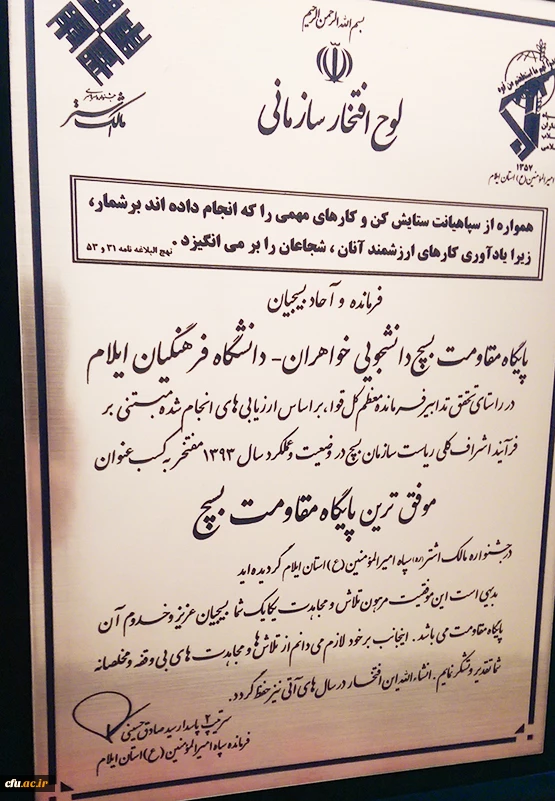 بسم الله الرحمن الرحیم
لوح افتخار سازمانی
جشنواره سراسری
مالک اشتر
سپاه
۱۳۵۷
امیرالمؤمنین(ع) استان ایلام
همواره از سپاهیانت ستایش کن و کارهای مهمی را که انجام داده اند برشمار،
زیرا یادآوری کارهای ارزشمند آنان ، شجاعان را بر می انگیزد. نهج البلاغه نامه ۳۱ و ۵۳
فرمانده و آحاد بسیجیان
پایگاه مقاومت بسیج دانشجویی خواهران - دانشگاه فرهنگیان ایلام
در راستای تحقق تدابیر فرمانده معظم کل قوا، بر اساس ارزیابی های انجام شده مبتنی بر
فرآیند اشراف کلی ریاست سازمان بسیج در وضعیت و عملکرد سال ۱۳۹۳ مفتخر به کسب عنوان
موفق ترین پایگاه مقاومت بسیج
در جشنواره مالک اشتر(ره) سپاه امیرالمؤمنین(ع) استان ایلام گردیده اید
بدیهی است این موفقیت مرهون تلاش و مجاهدت یکایک شما بسیجیان عزیز و خدوم آن
پایگاه مقاومت می باشد . اینجانب بر خود لازم می دانم از تلاش ها و مجاهدت های بی وقفه و مخلصانه
شما تقدیر و تشکر نمایم . انشاءالله این افتخار در سال های آتی نیز حفظ گردد.
سرتیپ ۲ پاسدار سید صادق حسینی
فرمانده سپاه امیرالمؤمنین (ع) استان ایلام
cfu.ac.ir